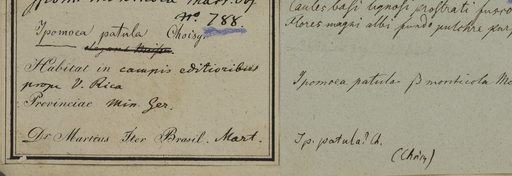 No 788
Ipomoea patula Choisy
Habitat in campis editioribus
prope V. Rica
Provinciae Min. Ger.
Dr Martius Iter Brasil. Mart.
Caules basi lignosi prostrati
flores magni albi fundo pulchre
Ipomoea patula β monticola
Ip. patula? Ch.
(Choisy)